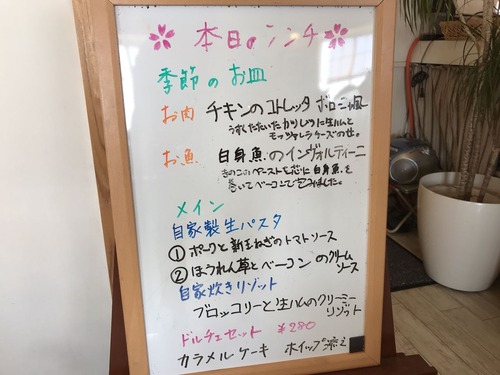 本日のランチ
季節のお皿
お肉 チキンのコトレッタ ボロニャ風
うすくたたいたカツレツに生ハムと
モッツァレラチーズのせ。
お魚 白身魚のインヴォルティーニ
きのこのペーストを芯に白身魚を
巻いてベーコンで包みました。
メイン
自家製生パスタ
① ポークと新玉ねぎのトマトソース
② ほうれん草とベーコンのクリーム
ソース
自家炊きリゾット
ブロッコリーと生ハムのクリーミー
リゾット
ドルチェセット ¥280
カラメルケーキ ホイップ添え